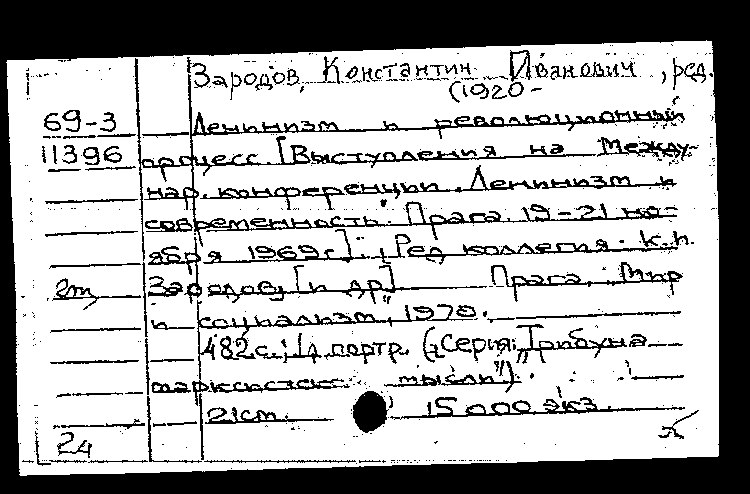 Зародов, Константин Иванович, ред.
(1920-
69-3 Ленинизм и революционный
11396 процесс. [Выступления на Между-
нар. конференции "Ленинизм и
современность". Прага. 19-21 но-
ября 1969 г.]. [Ред. коллегия: К.И.
Зародов [и др.] Прага, "Мир
и социализм", 1970.
482 с.; 1 л. портр. (Серия: "Трибуна
марксистск. мысли").
21 см. 15000 экз.
24